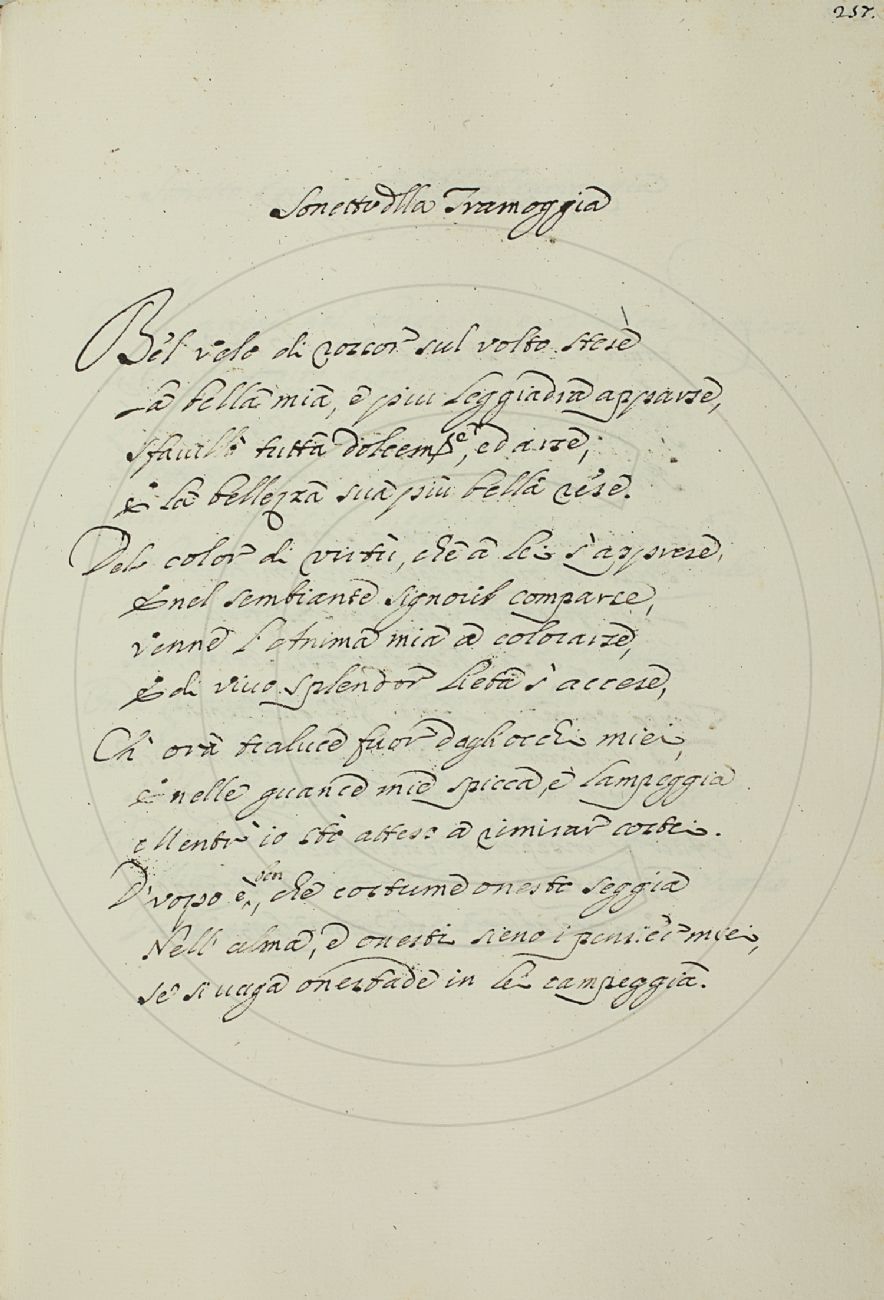 257.
Sonetto dlla Tramoggia
Bel velo di rossor sul volto stese
La bella mia, e piu leggiadra apparse,
Sfavillò tutta dolcem.te, ed arse,
E la bellezza sua più bella rese.
Del color di virtù, che a lei s'apprese,
E nel sembiante signoril comparse,
venne l'Anima mia a colorarse,
E di vivo splendor lieta s'accese,
Ch' ora traluce fuor dagli occhi miei,
E nelle guance mie spicca, e lampeggia
Mentr' io stò atteso a rimirar costei.
D'uopo è ben, che costume onesto seggia
Nell' alma, e onesti sieno i pensier miei,
Se sì vaga onestade in lei campeggia.